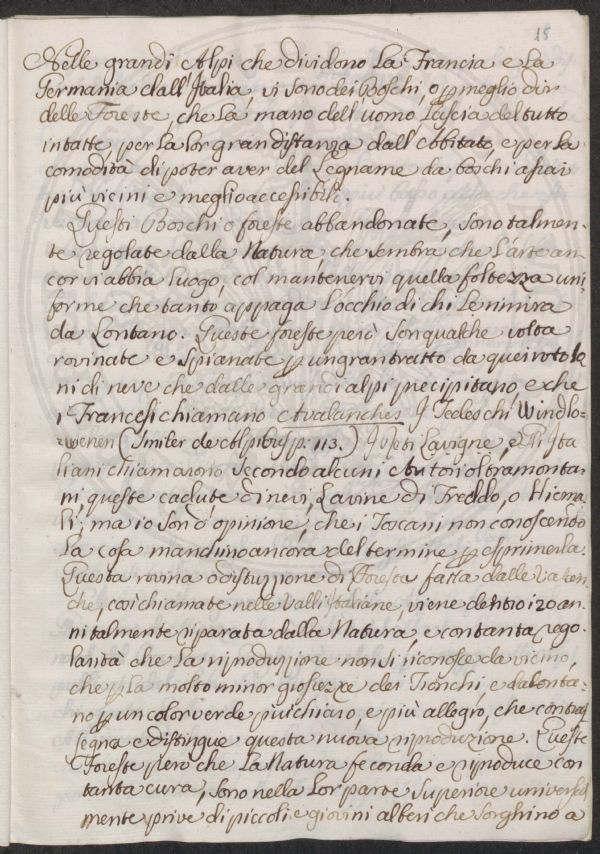 15
Nelle grandi Alpi che dividono la Francia e la
Germania dall'Italia, vi sono dei Boschi, o p meglio dir
delle Foreste, che la mano dell'uomo lascia del tutto
intatte, per la lor gran distanza dall'abitato, e per la
comodità di poter aver del Legname da boschi assai
più vicini e meglio accessibili.
Questi Boschi o foreste abbandonate, sono talmen-
te regolate dalla Natura, che sembra che l'arte an-
cor vi abbia luogo, col mantenervi quella foltezza uni-
forme che tanto appaga l'occhio di chi le rimira
da Lontano. Queste foreste però son qualche volta
rovinate e spianate p un gran tratto da quei rotola
ni di neve che dalle grandi alpi precipitano, e che
i Francesi chiamano Avalanches I Tedeschi Windlo-
-wenen (Simler de Alpibus p. 113.) I Reti Lavigne, e Gli Ita
liani chiamarono secondo alcuni Autori oltramonta-
ni, queste cadute di nevi, Lavine di Freddo, o Hiema
li; ma io son d'opinione, che i Toscani non conoscendo
la cosa manchino ancora del termine p esprimerla.
Questa rovina o distruzzione di Foresta fatta dalle
che, così chiamate nelle Valli Italiane, viene dentro i 20 an-
ni talmente riparata dalla Natura, e con tanta rego-
larità che la riproduzzione non si riconosce da vicino,
che p la molto minor grossezza dei Tronchi, e da lonta-
no p un color verde più chiaro, e più allegro, che contras
segna e distingue questa nuova riproduzione. Queste
Foreste però che la Natura feconda e riproduce con
tanta cura, sono nella lor parte superiore universal
mente prive di piccoli e giovini alberi che sorghino a